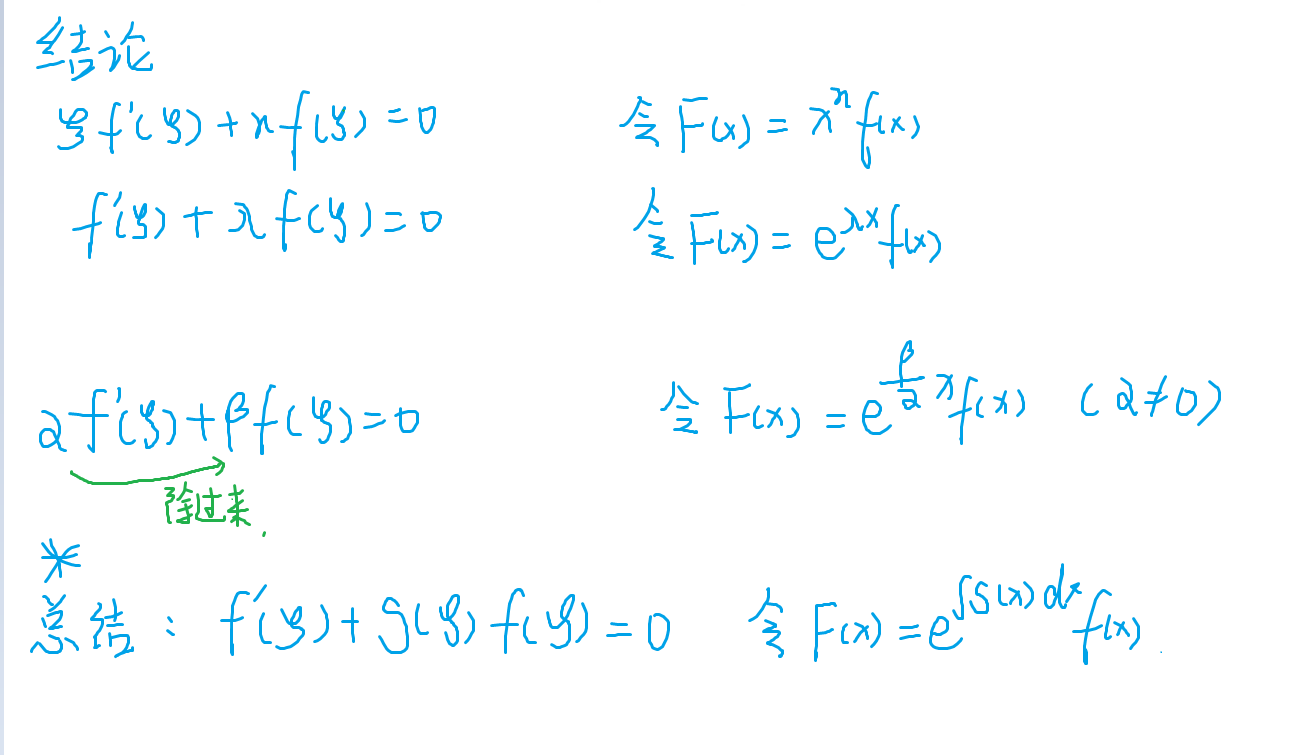 结论
ξf'(ξ)+nf(ξ)=0 令F(x)=xⁿf(x)
f'(ξ)+λf(ξ)=0 令F(x)=e^{λx}f(x)
αf'(ξ)+βf(ξ)=0 令F(x)=e^{\frac{β}{α}x}f(x) (α≠0)
除过来.
*
总结:f'(ξ)+g(ξ)f(ξ)=0 令F(x)=e^{∫g(x)dx}f(x).